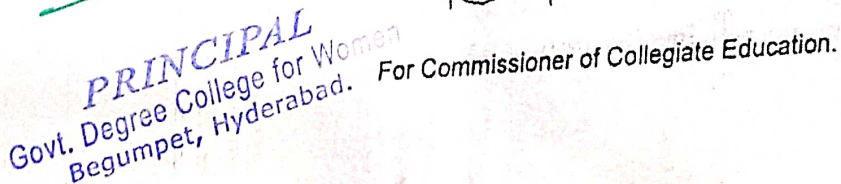 PRINCIPAL
Govt. Degree College for Women
Begumpet, Hyderabad.
For Commissioner of Collegiate Education.